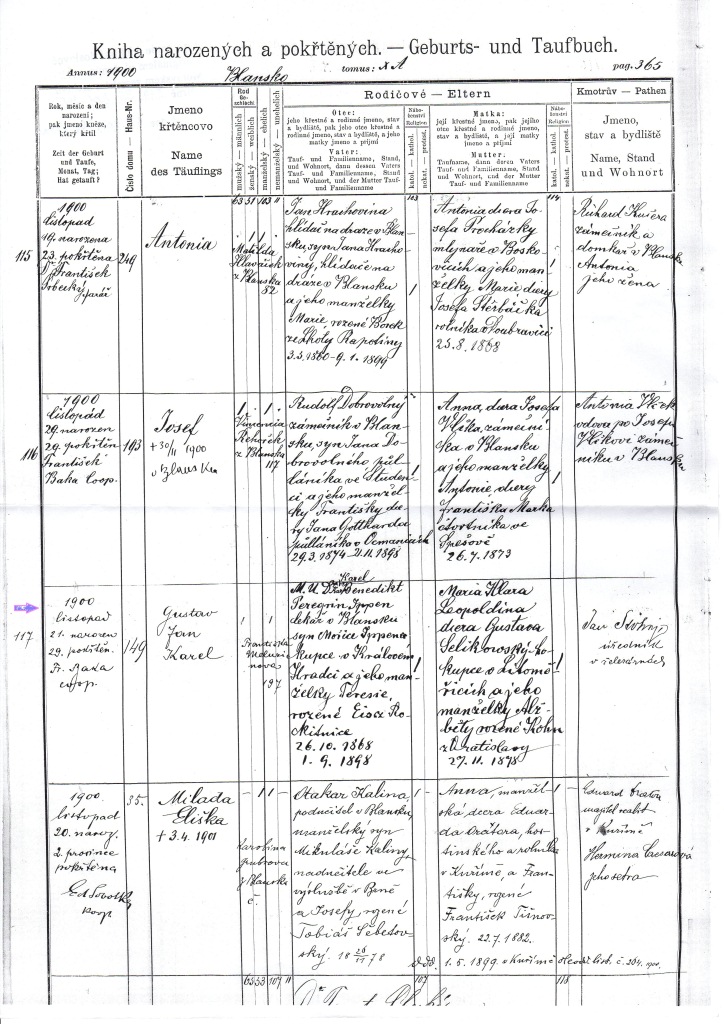 Kniha narozených a pokřtěných. — Geburts- und Taufbuch.
Annus: 1900 Blansko tomus: XA pag. 365
Rok, měsíc a den
narození;
pak jmeno kněze,
který křtil
Zeit der Geburt
und Taufe,
Monat, Tag;
Hat getauft?
Číslo domu — Haus-Nr.
Jmeno
křtěncovo
Name
des Täuflings
Rod
Geschlecht
mužský — männlich
ženský — weiblich
manželský — ehelich
nemanželský — unehelich
Rodičové — Eltern
Otec:
jeho křestné a rodinné jmeno,
stav a bydliště, pak jeho otce křestné a
rodinné jmeno, stav a bydliště, a jeho
matky jmeno a příjmí
Vater:
Tauf- und Familienname, Stand,
und Wohnort, dann dessen Vaters
Tauf- und Familienname, Stand
und Wohnort, und der Mutter
Tauf- und Familienname
Náboženství
Religion
katol. — kathol.
nekat. — protest.
Matka:
její křestné jmeno, pak jejího
otce křestné a rodinné jmeno,
stav a bydliště, a její matky
jmeno a příjmí
Mutter:
Taufname, dann deren Vaters
Tauf- und Familienname, Stand
und Wohnort, und der Mutter
Tauf- und Familienname
Náboženství
Religion
katol. — kathol.
nekat. — protest.
Kmotrův — Pathen
Jmeno,
stav a bydliště
Name, Stand
und Wohnort
63 51 103 11
103
114
115
1900
listopad
19. narozena
23. pokřtěna
František
farář
249
Antonia
Matilda
Hlaváček
z Blanska
52
Jan Hrachovina
hlídač na dráze v Blansku,
syn Jana Hrachoviny,
hlídače na
dráze v Blansku
a jeho manželky
Marie, rozené Bosek
ze Lhoty Rapotiny
3.5.1860 - 9.1.1899
Antonia dcera Josefa
Procházky
mlynáře v Boskovicích
a jeho manželky
Marie dcery
Josefa Štěrbáčka
rolníka v Doubravici
25.8.1868
Richard Kučera
zámečník a
domkář v Blansku
Antonia
jeho žena
116
1900
listopad
29. narozen
29. pokřtěn
František
Baka Coop.
193
Josef
+ 30/11 1900
v Blansku
Vincencia
Řehořek
z Blanska
117
Rudolf Dobrovolný
zámečník v Blansku,
syn Jana Dobrovolného
půlláníka
ve Studenci
a jeho manželky
Františky dcery
Jana Gottharda
půlláníka v Ocmanicích
29.3.1874 21.11.1898
Anna, dcera Josefa
Vlčka, zámečníka
v Blansku
a jeho manželky
Antonie dcery
Františka Marka
čtvrtníka ve
Spešově
26.7.1873
Antonia Vlček
vdova po Josefu
Vlčkovi zámečníku
v Blansku
117
1900
listopad
21. narozen
29. pokřtěn
Fr. Baka
coop.
149
Gustav
Jan
Karel
Františka
197
M. U. Dr. Karel Benedikt
Peregrin Ippen
lékař v Blansku
syn Mořice Ippena
kupce v Králověm
Hradci a jeho manželky
Teresie,
rozené Eisz z Rokitnice
26.10.1868
1. 9. 1898
Maria Klara
Leopoldina
dcera Gustava
Selikowský-ho
kupce v Litoměřicích
a jeho
manželky Alžběty
rozené Kohn
z Vratislavy
27.11.1878
Jan
úředník
v železárnách
1900
listopad
20. naroz.
2. prosince
pokřtěna
Ed. Sovotka
koop.
35.
Milada
Eliška
+ 3.4.1901
Karolina
z Blanska
č.
Otakar Kalina,
podučitel v Blansku,
manželský syn
Mikuláše Kaliny,
nadučitele ve
výslužbě v Brně
a Josefy, rozené
Tobiáš Šebetovský.
18 26/11 78
Anna, manželská
dcera Eduarda
Oráťora, hostinského
a rolníka
v Kuřimě, a Františky,
rozené
František Tišnovský.
22.7.1882.
odd. 1.5.1899 v Kuřimě
Edward
majitel realit
v Kuřimě
Hermina Caesarová
jeho sestra
63 53 107 11
107
118